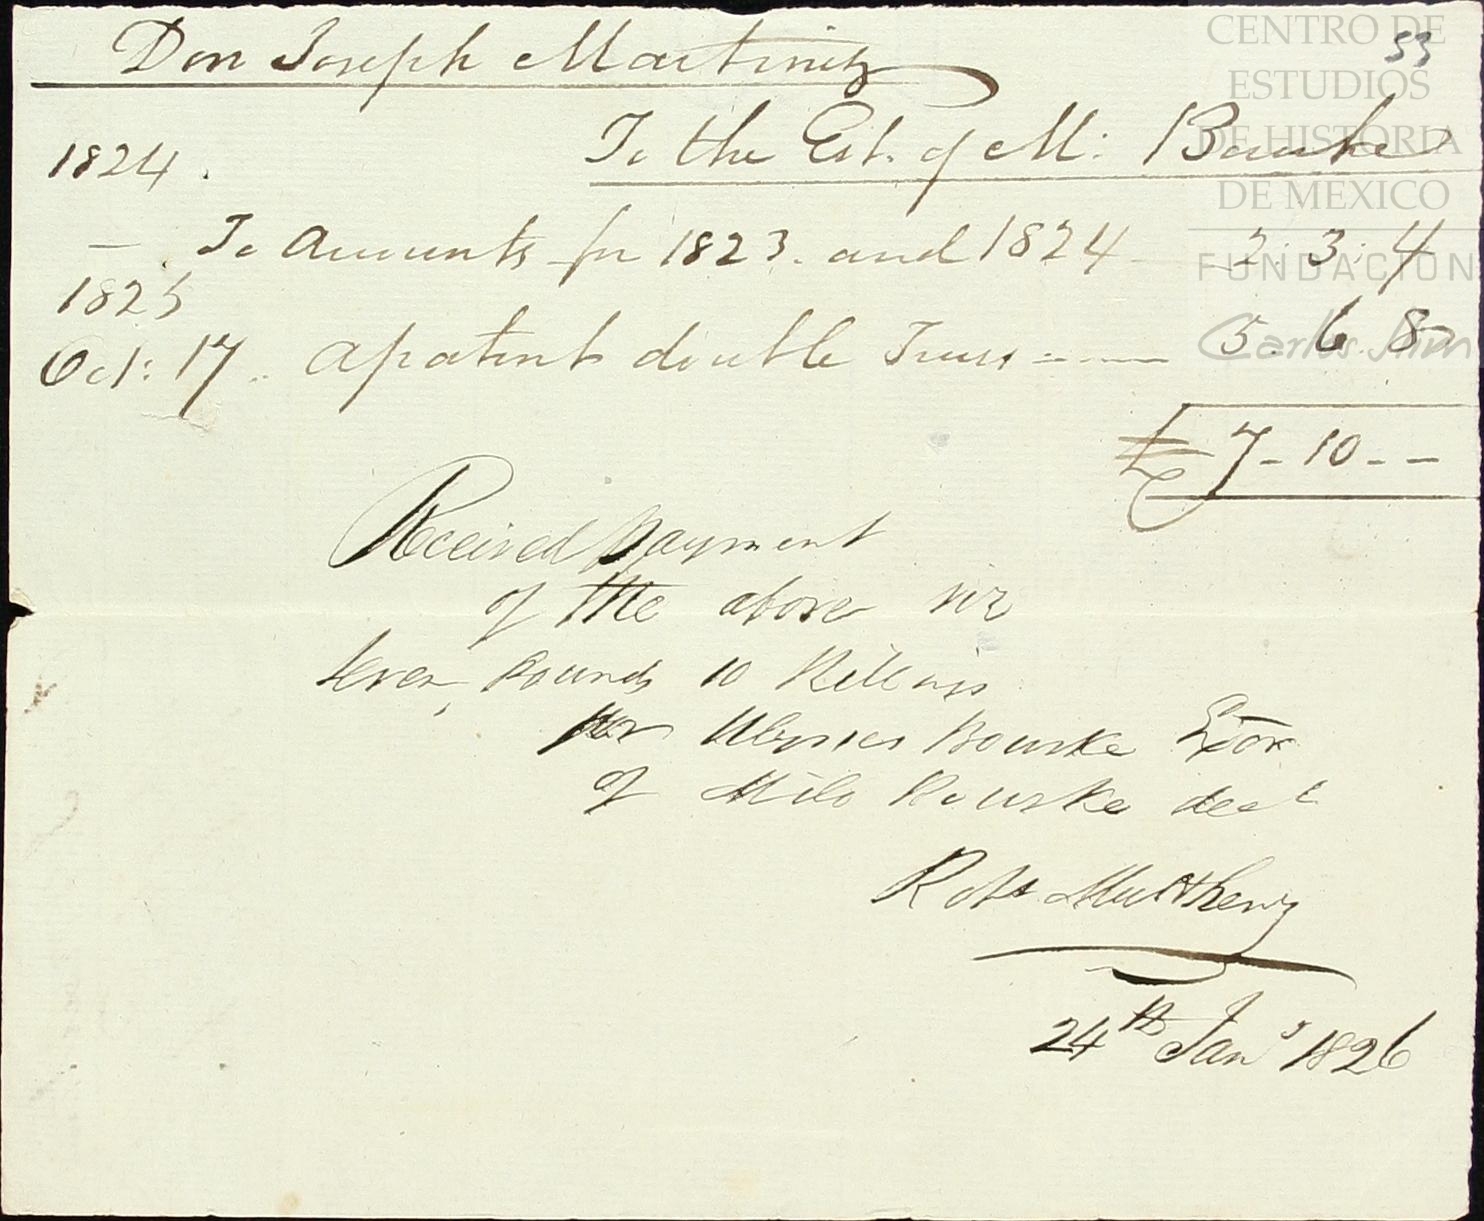 53
Don Joseph Martinez
To the Est. of M: Bourke
1824.
— To Amounts for 1823. and 1824 2: 3: 4
1825
Oct: 17 .. a patent double Truss 5. 6. 8
£ 7 - 10 - -
Received payment
of the above viz
seven Pounds 10
per Ulysses Bourke Exor
of Milo Bourke decd
Robt
24th Jany 1826
CENTRO DE
ESTUDIOS
DE HISTORIA
DE MEXICO
FUNDACION
Carlos Slim